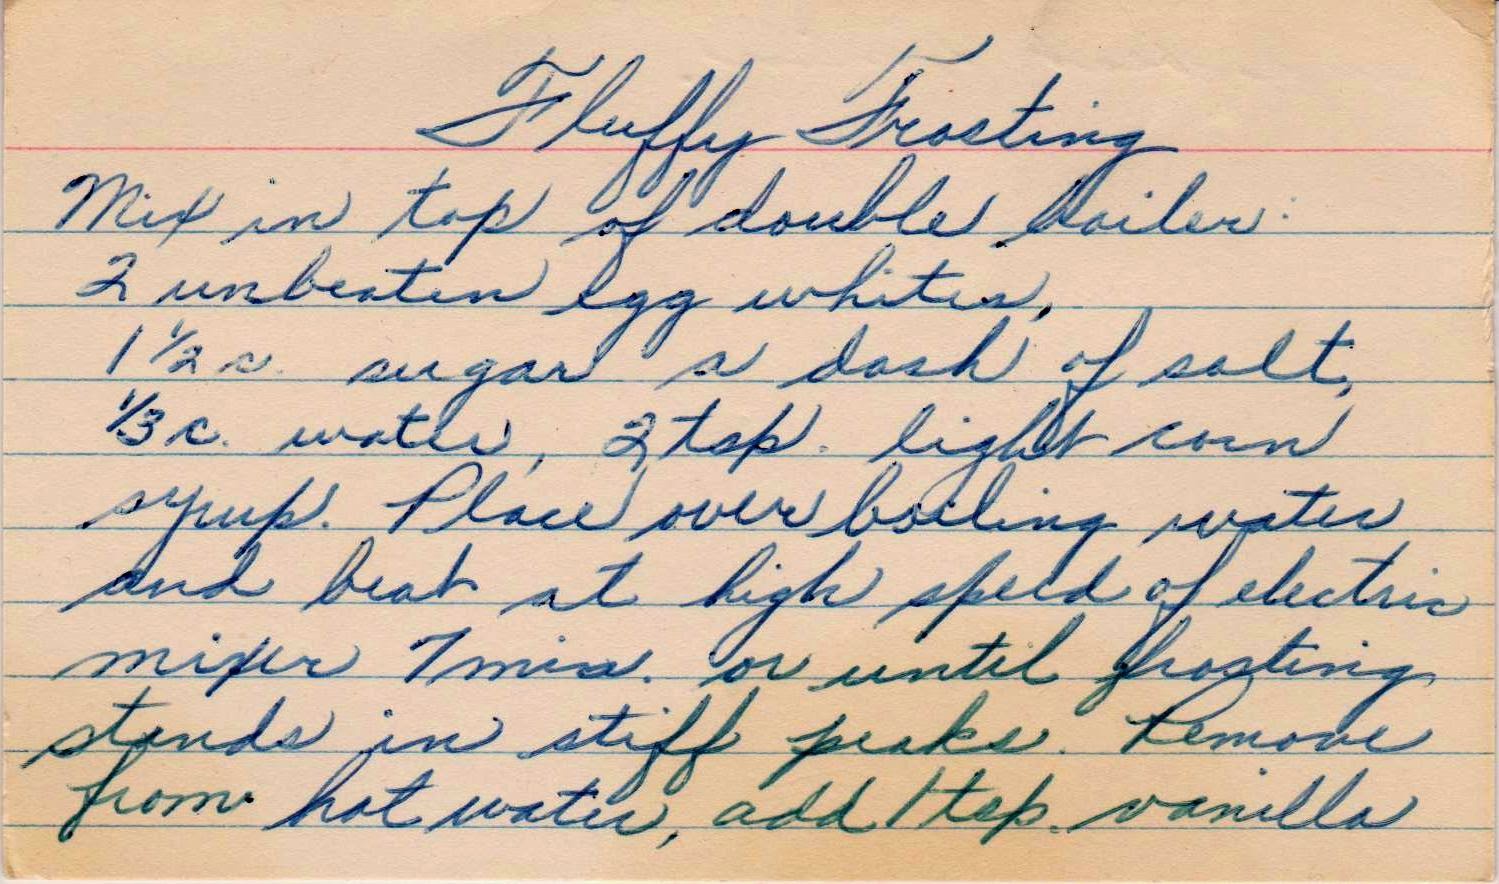 Fluffy Frosting
Mix in top of double boiler:
2 unbeaten egg whites,
1 1/2 c. sugar a dash of salt,
1/3 c. water, 2 tsp. light corn
syrup. Place over boiling water
and beat at high speed of electric
mixer 7 min. or until frosting
stands in stiff peaks. Remove
from hot water, add 1 tsp. vanilla